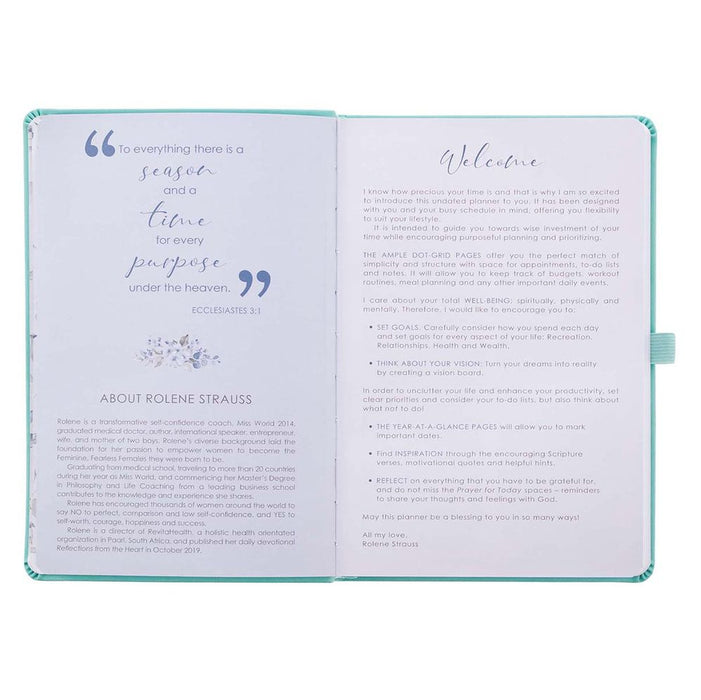 “To everything there is a
season
and a
time
for every
purpose
under the heaven.”
ECCLESIASTES 3:1
ABOUT ROLENE STRAUSS
Rolene is a transformative self-confidence coach, Miss World 2014,
graduated medical doctor, author, international speaker, entrepreneur,
wife, and mother of two boys. Rolene's diverse background laid the
foundation for her passion to empower women to become the
Feminine, Fearless Females they were born to be.
Graduating from medical school, traveling to more than 20 countries
during her year as Miss World, and commencing her Master's Degree
in Philosophy and Life Coaching from a leading business school
contributes to the knowledge and experience she shares.
Rolene has encouraged thousands of women around the world to
say NO to perfect, comparison and low self-confidence, and YES to
self-worth, courage, happiness and success.
Rolene is a director of RevitaHealth, a holistic health orientated
organization in Paarl, South Africa, and published her daily devotional
Reflections from the Heart in October 2019.
Welcome
I know how precious your time is and that is why I am so excited
to introduce this undated planner to you. It has been designed
with you and your busy schedule in mind; offering you flexibility
to suit your lifestyle.
It is intended to guide you towards wise investment of your
time while encouraging purposeful planning and prioritizing.
THE AMPLE DOT-GRID PAGES offer you the perfect match of
simplicity and structure with space for appointments, to-do lists
and notes. It will allow you to keep track of budgets, workout
routines, meal planning and any other important daily events.
I care about your total WELL-BEING: spiritually, physically and
mentally. Therefore, I would like to encourage you to:
• SET GOALS. Carefully consider how you spend each day
and set goals for every aspect of your life: Recreation,
Relationships, Health and Wealth.
• THINK ABOUT YOUR VISION: Turn your dreams into reality
by creating a vision board.
In order to unclutter your life and enhance your productivity, set
clear priorities and consider your to-do lists, but also think about
what not to do!
• THE YEAR-AT-A-GLANCE PAGES will allow you to mark
important dates.
• Find INSPIRATION through the encouraging Scripture
verses, motivational quotes and helpful hints.
• REFLECT on everything that you have to be grateful for,
and do not miss the Prayer for Today spaces – reminders
to share your thoughts and feelings with God.
May this planner be a blessing to you in so many ways!
All my love,
Rolene Strauss